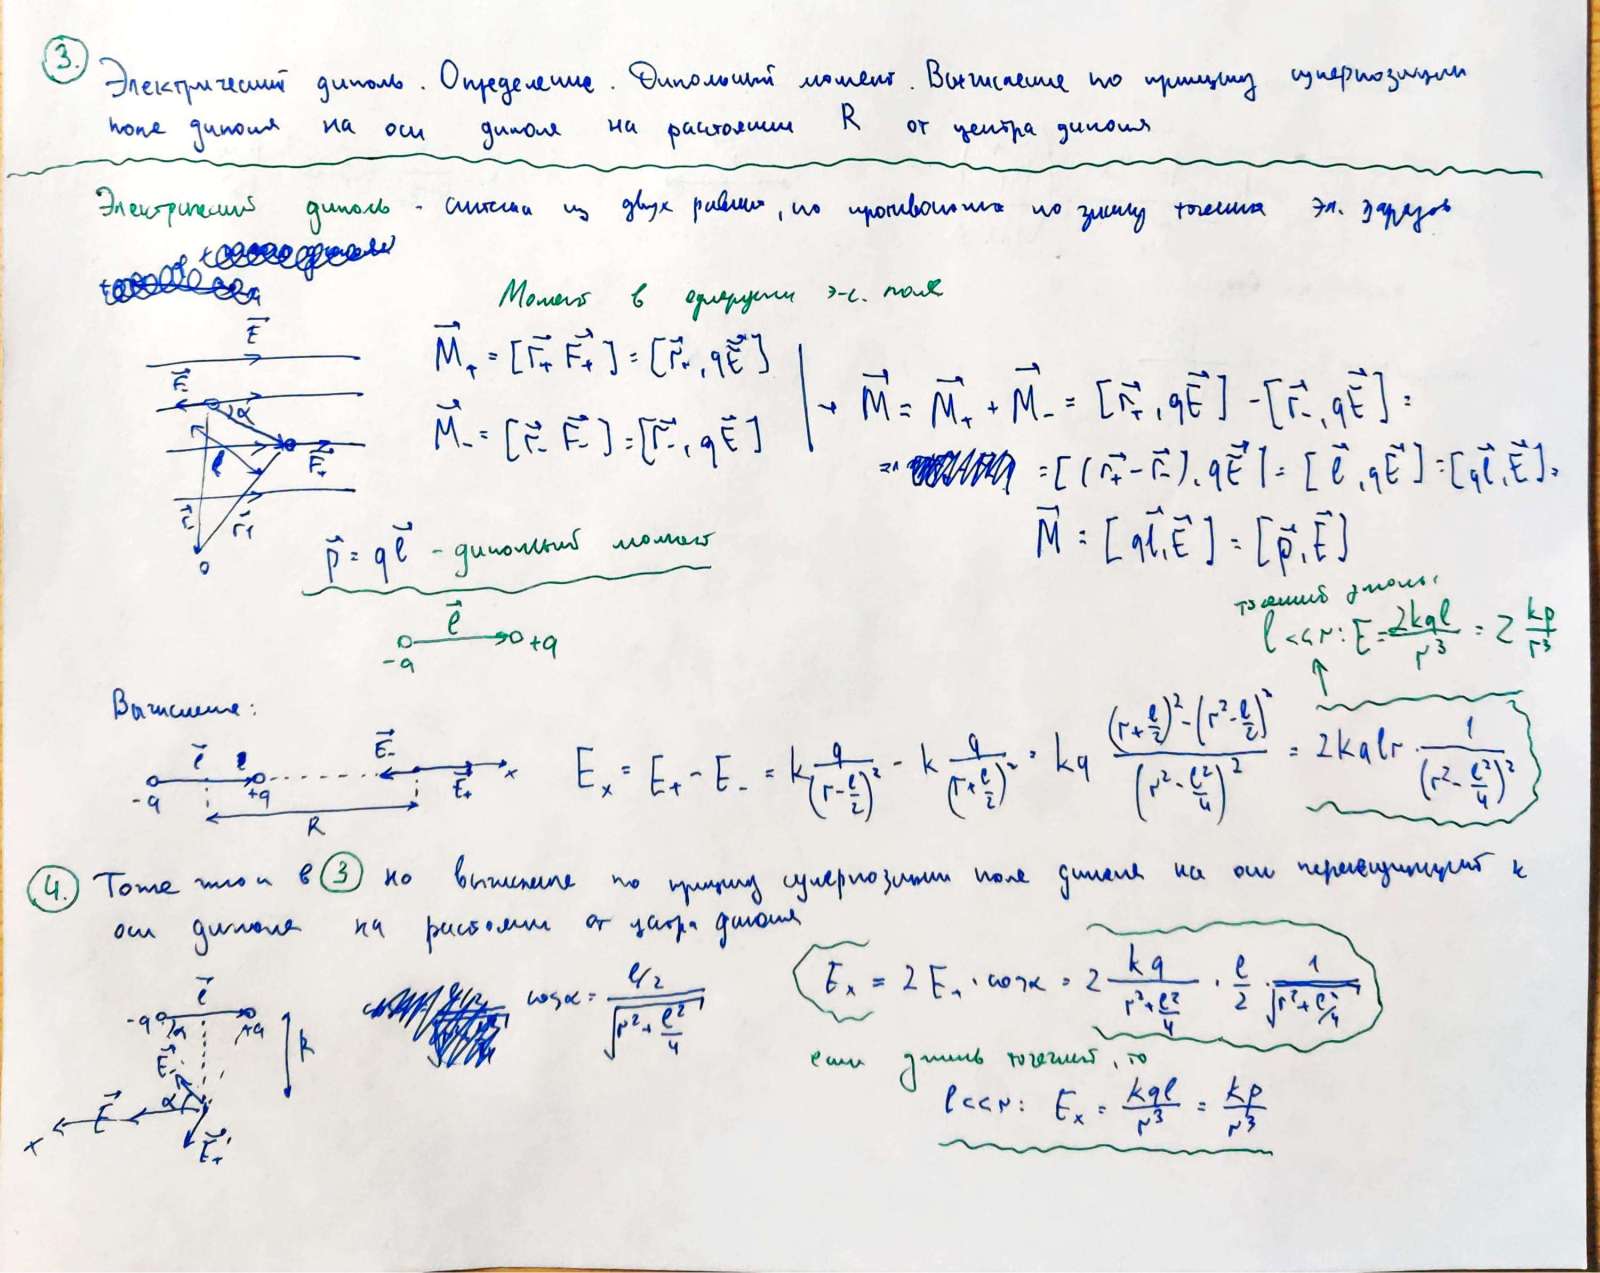 3. Электрический диполь. Определение. Дипольный момент. Вычисление по принципу суперпозиции
поле диполя на оси диполя на расстоянии R от центра диполя
Электрический диполь - система из двух равных, но противополож по знаку точечных эл. зарядов
Момент в однородном э-с. поле
E⃗
M⃗₊ = [r⃗₊ F⃗₊] = [r⃗₊, qE⃗]
F⃗₋
α
M⃗ = M⃗₊ + M⃗₋ = [r⃗₊, qE⃗] - [r⃗₋, qE⃗] =
M⃗₋ = [r⃗₋ F⃗₋] = [r⃗₋, qE⃗]
l F⃗₊
= [(r⃗₊ - r⃗₋), qE⃗] = [l⃗, qE⃗] = [ql⃗, E⃗] =
r⃗₋ r⃗₊
M⃗ = [ql⃗, E⃗] = [p⃗, E⃗]
p⃗ = ql⃗ - дипольный момент
0
точечный диполь:
l << r: E = 2kql/r³ = 2 kp/r³
l⃗
-q +q
Вычисление:
l⃗ E⃗₋
-q +q E⃗₊ x
R
Eₓ = E₊ - E₋ = k q/(r - l/2)² - k q/(r + l/2)² = kq ((r + l/2)² - (r² - l/2)²)/(r² - l²/4)² = 2kqlr · 1/(r² - l²/4)²
4. Тоже что и в 3 но вычисление по принципу суперпозиции поле диполя на оси перпендикулярной к
оси диполя на расстоянии от центра диполя
l⃗
-q +q
α
R
E⃗₋
α
E⃗
x
E⃗₊
cosα = (l/2)/√(r² + l²/4)
Eₓ = 2E₊ · cosα = 2 kq/(r² + l²/4) · l/2 · 1/√(r² + l²/4)
если диполь точечный, то
l << r: Eₓ = kql/r³ = kp/r³